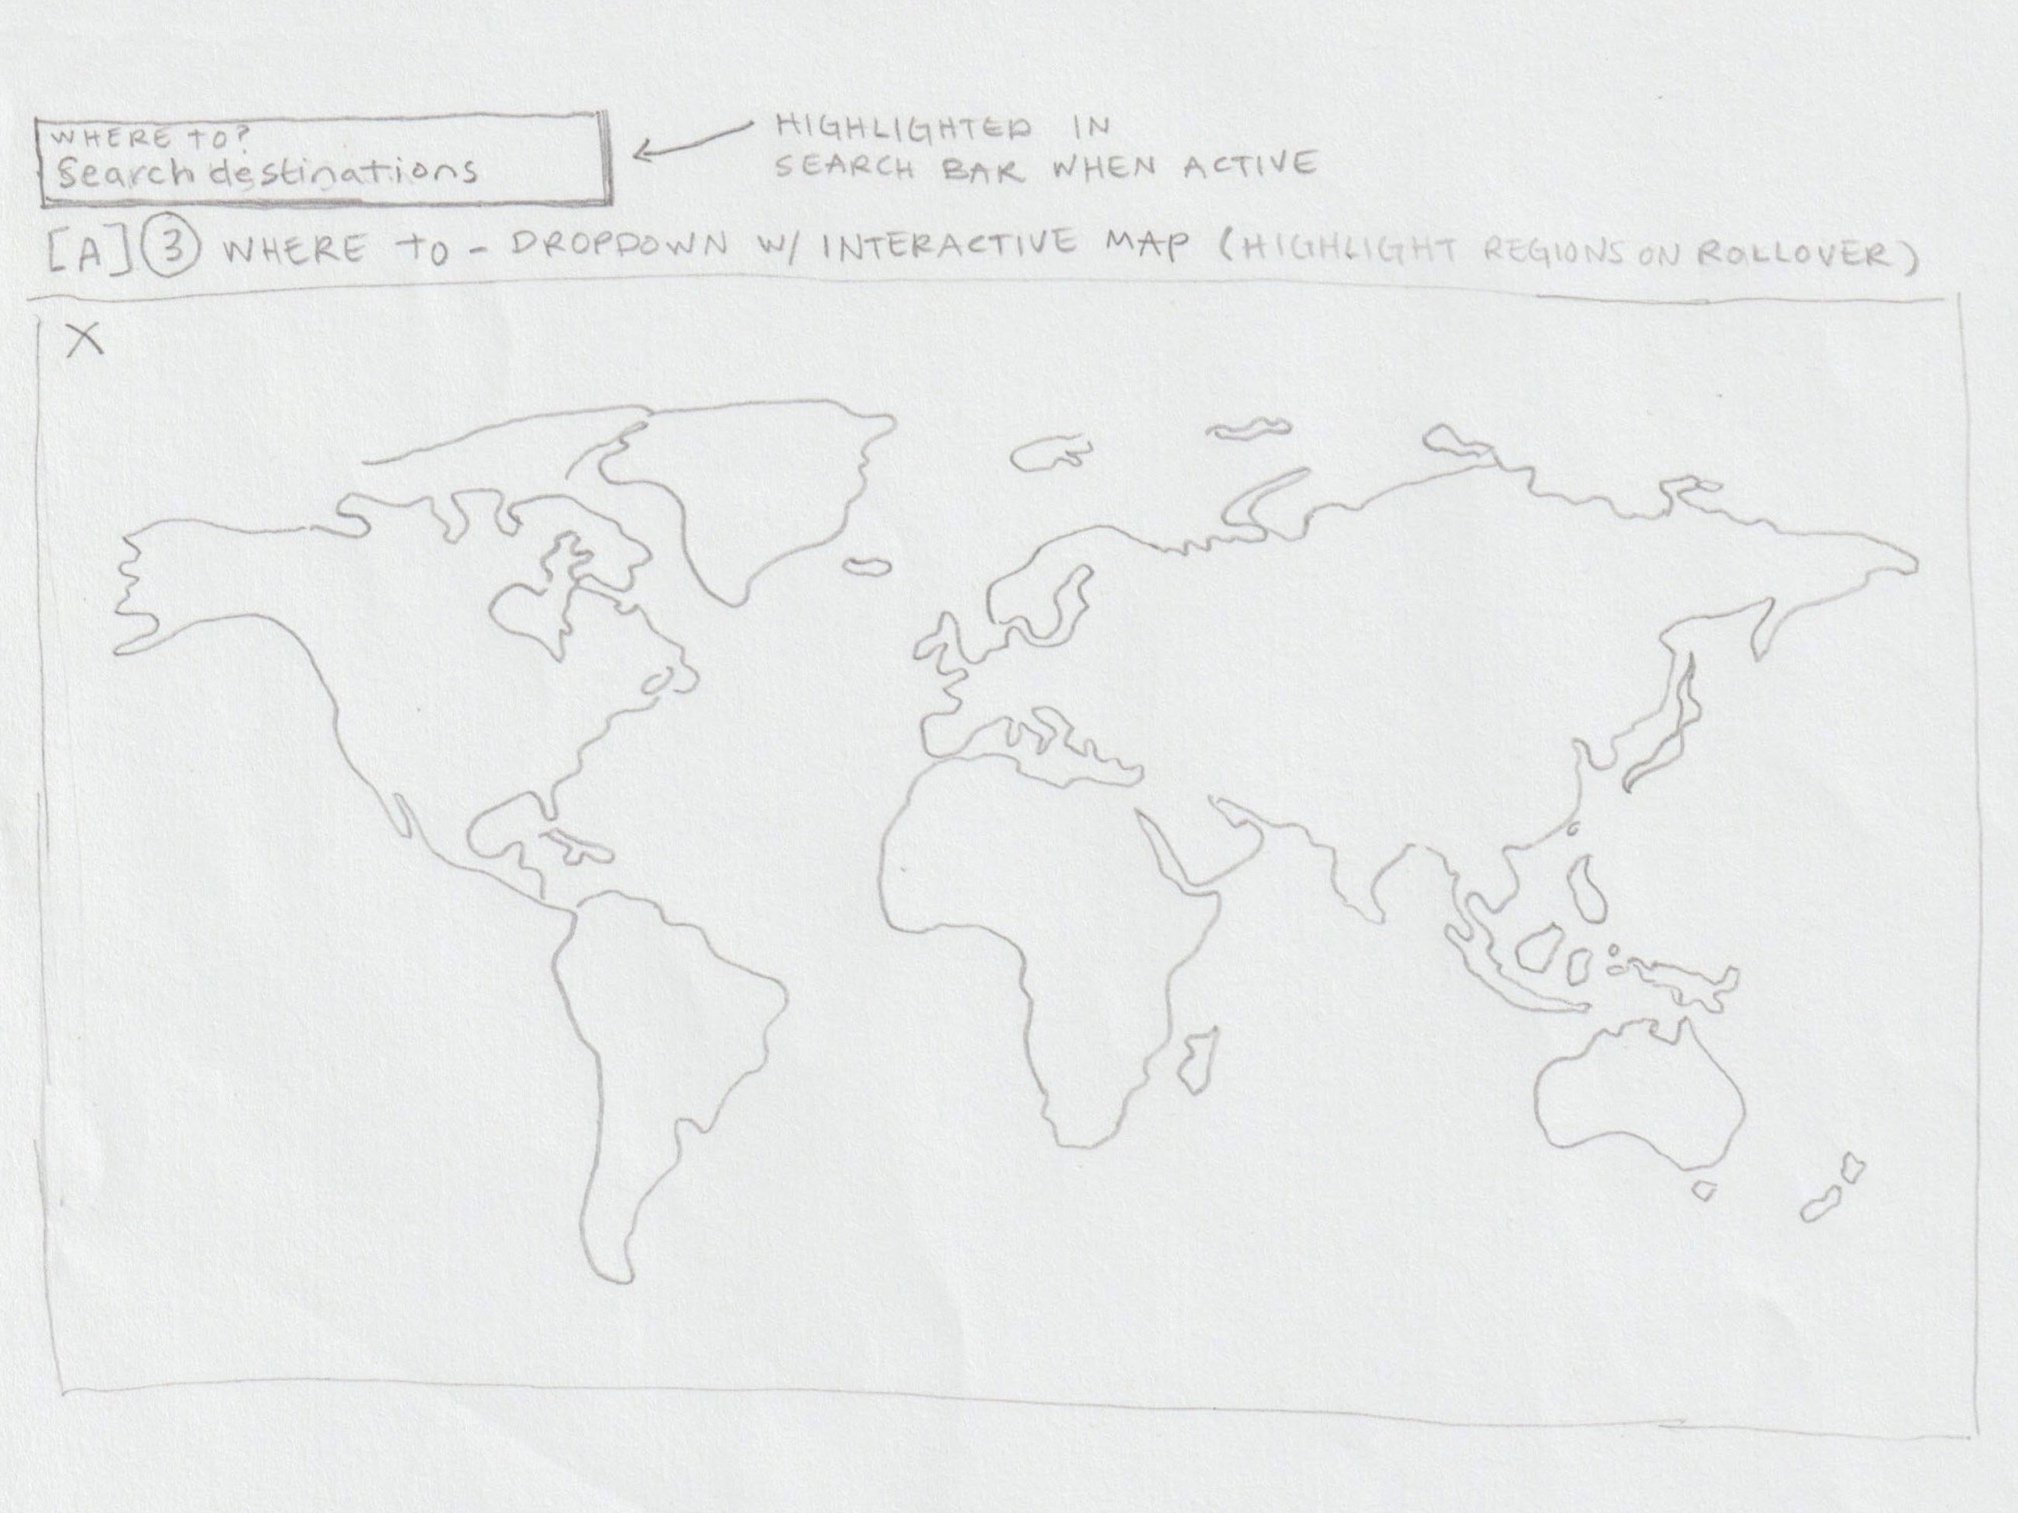 WHERE TO?
Search destinations
HIGHLIGHTED IN
SEARCH BAR WHEN ACTIVE
[A] 3 WHERE TO - DROPDOWN W/ INTERACTIVE MAP (HIGHLIGHT REGIONS ON ROLLOVER)
X